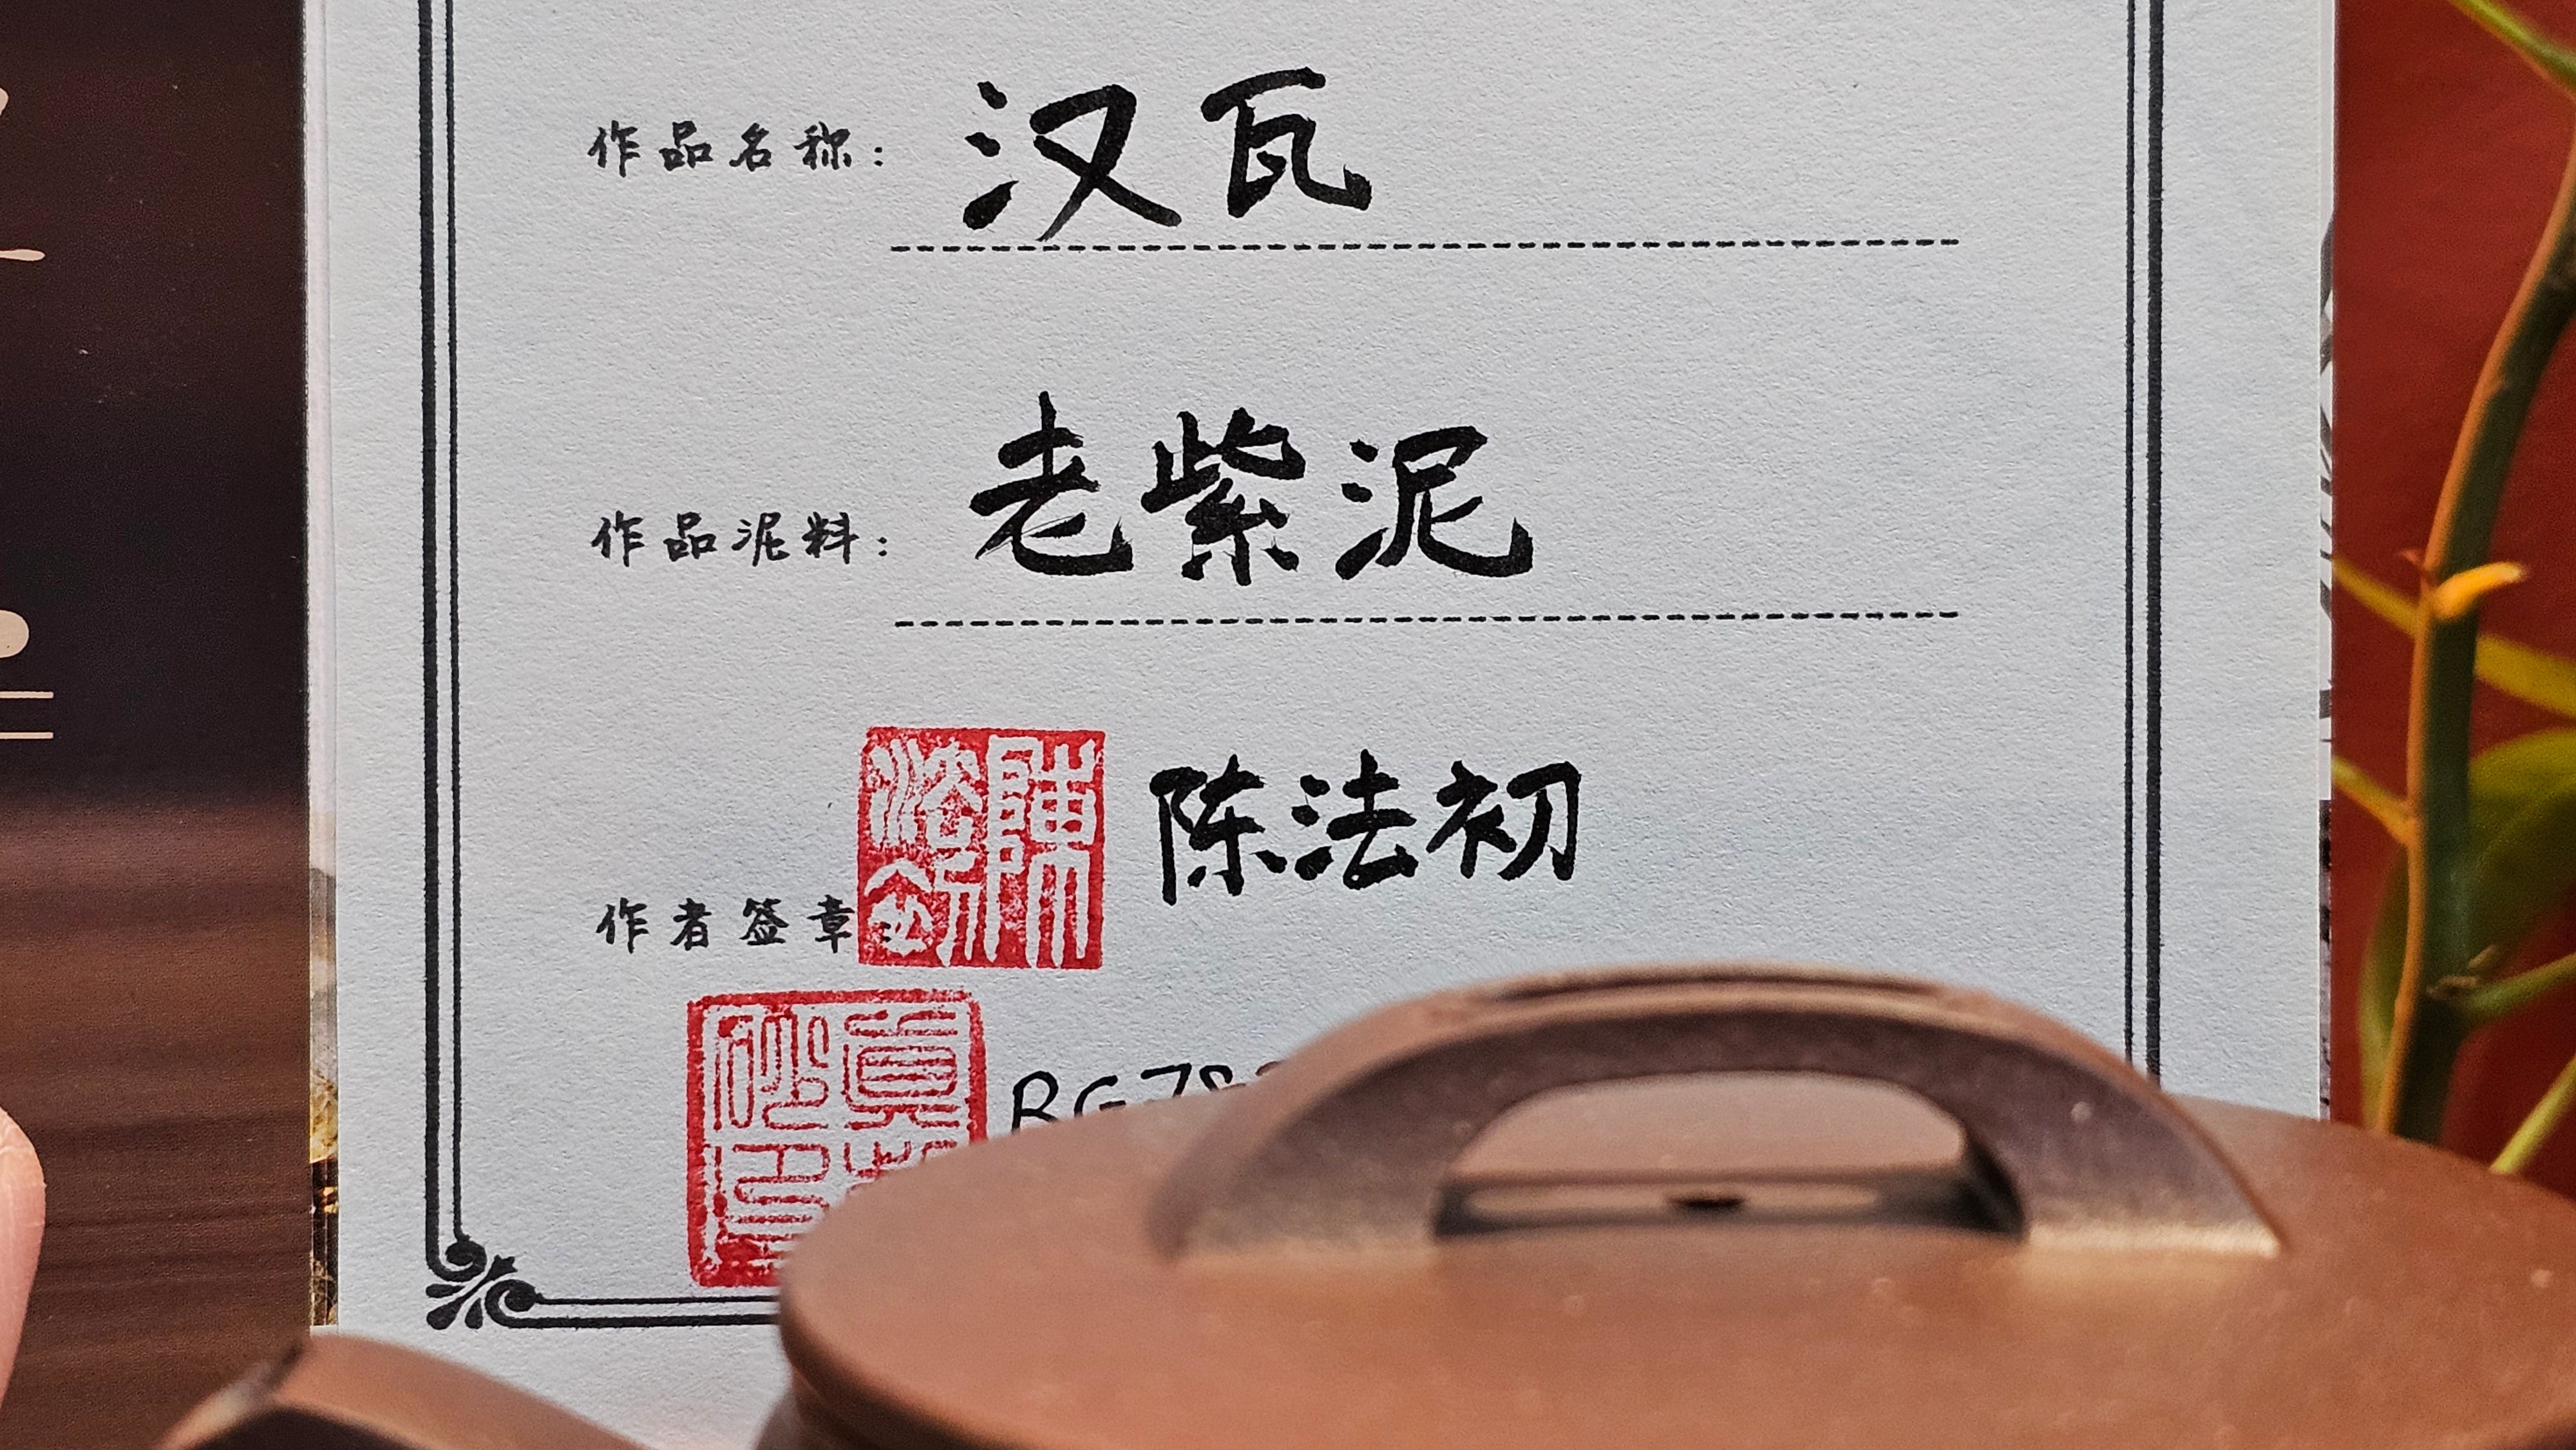 作品名称: 汉瓦
作品泥料: 老紫泥
陈法初
作者签章:
BG78